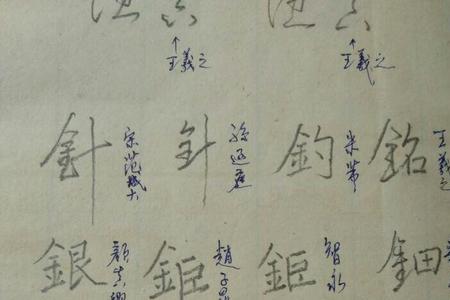 ↑ ↑
王羲之 王羲之
針 宋范成大 針 孫過庭 釣 米芾 銘 王羲之
銀 顏真卿 鉅 趙子昂 鉅 智永 鈿